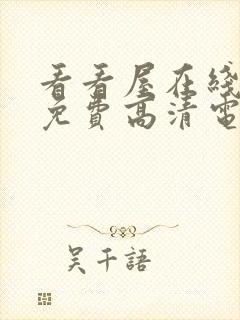 看看屋在綫
免費高清電
吴千語